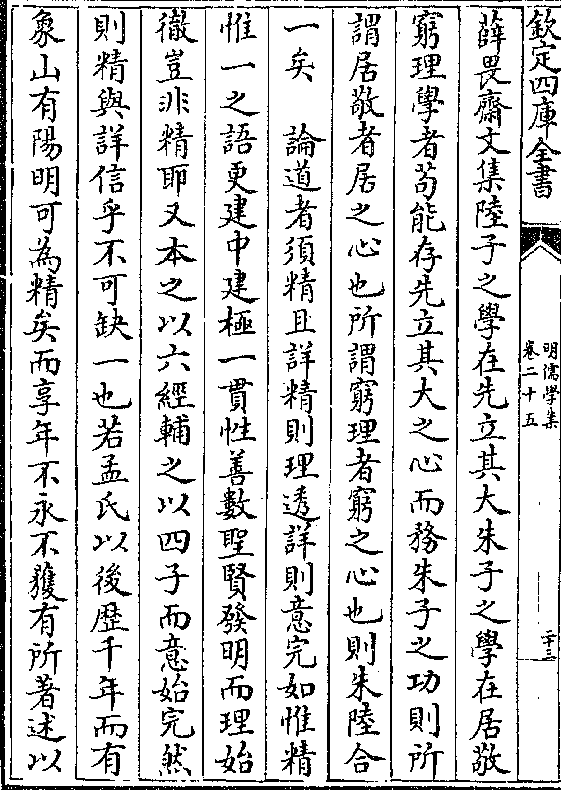 欽定四庫全書
明儒學案
卷二十五
二十三
薛畏齋文集陸子之學在先立其大朱子之學在居敬
窮理學者茍能存先立其大之心而務朱子之功則所
謂居敬者居之心也所謂窮理者窮之心也則朱陸合
一矣　論道者須精且詳精則理透詳則意完如惟精
惟一之語更建中建極一貫性善數聖賢發明而理始
徹豈非精耶又本之以六經輔之以四子而意始完然
則精與詳信乎不可缺一也若孟氏以後歴千年而有
象山有陽明可為精矣而享年不永不獲有所著述以